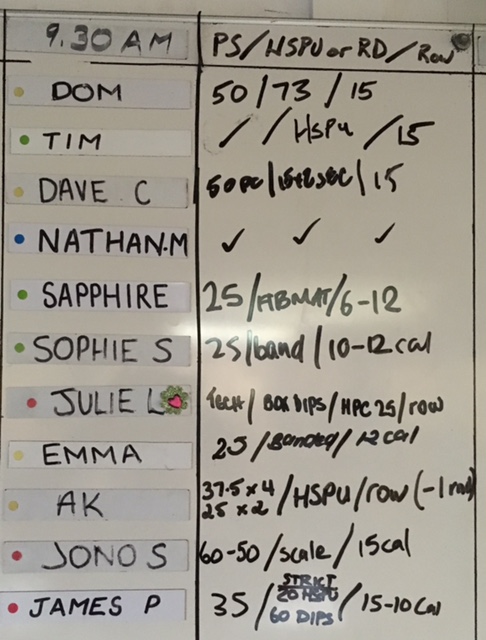 9.30 AM PS/HSPU or RD/Row
DOM 50/73/15
TIM / / HSPU /15
DAVE C 50PC/15+2SEC/15
NATHAN.M ✓ ✓ ✓
SAPPHIRE 25/ABMAT/6-12
SOPHIE S 25/band/10-12cal
JULIE L TECH/BOX DIPS/HPC 25/row
EMMA 25/Banded/12 cal
AK 37.5 x 4 /HSPU/row (-1
25 x 2
JONO S 60-50/scale/15cal
JAMES P 35/STRICT 20 HSPU/15-10 Cal
60 DIPS